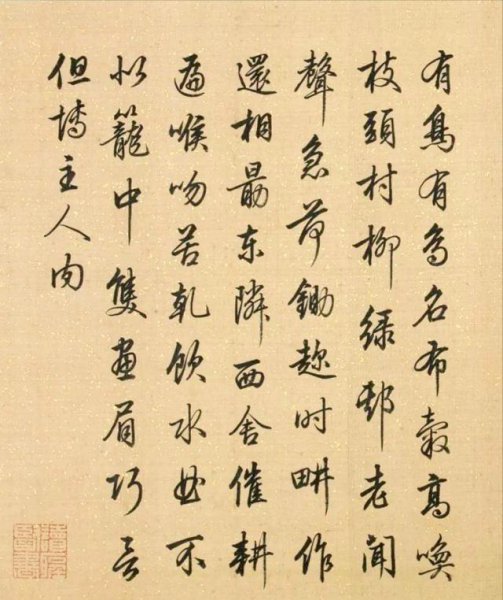 有鳥有鳥名布穀高喚
枝頭村柳緑老聞
聲急荷鋤趂时畊作
還相勗东隣西舍催耕
遍喉吻苦乾飲水曲不
似籠中隻畫眉巧言
但博主人肉